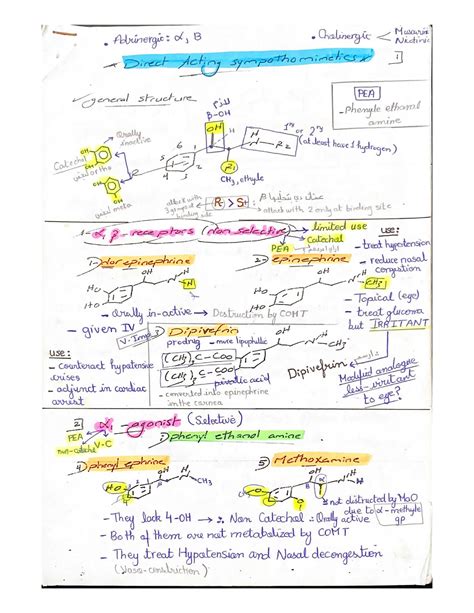 • Adrinergic: α, β
• Cholinergic
Musurin
Nicotinic
* Direct Acting sympathomimetics *
1
✓ general structure
PEA
- phenyle ethanol amine
β-OH
OH
1ry or 2ry
(at least have 1 hydrogen)
N-R2
H
Orally inactive
Catechol
OH
OH
OH
R1
CH3, ethyle
1
2
3
4
5
6
attack with 3 groups at binding site
R > S
attack with 2 only at binding site
1- α, β - receptors (non selective)
limited use
Catechal
PEA
use:
- treat hypertension
- reduce nasal congestion
1) Norepinephrine
2) epinephrine
OH
HO
HO
H
OH
HO
HO
CH3
- Orally in-active → Destruction by COMT
- given IV
- Topical (eye)
- treat glucoma
but IRRITANT
V. Imp
3) Dipivefrin
prodrug - more lipuphilic
(CH3)3 C-COO
(CH3)3 C-COO
OH
CH3
pivalic acid
- converted into epinephrine in the cornea
Dipivefrin
Modified analogue
less-irritant
to eye?
use:
- counteract hypotensive crises
- adjunct in cardiac arrest
2 α1 -agonist (Selective)
PEA
non-catechol
V-C
phenyl ethanol amine
4) phenyl ephrine
5) Methoxamine
HO
OH
CH3
OH
α
not distructed by MaO
due to α-methyle
gp
- They lack 4-OH → ∴ Non Catechal ∴ Orally active
- Both of them are not metabolized by COMT
- They treat Hypotension and Nasal decongestion
(Vaso-construction)